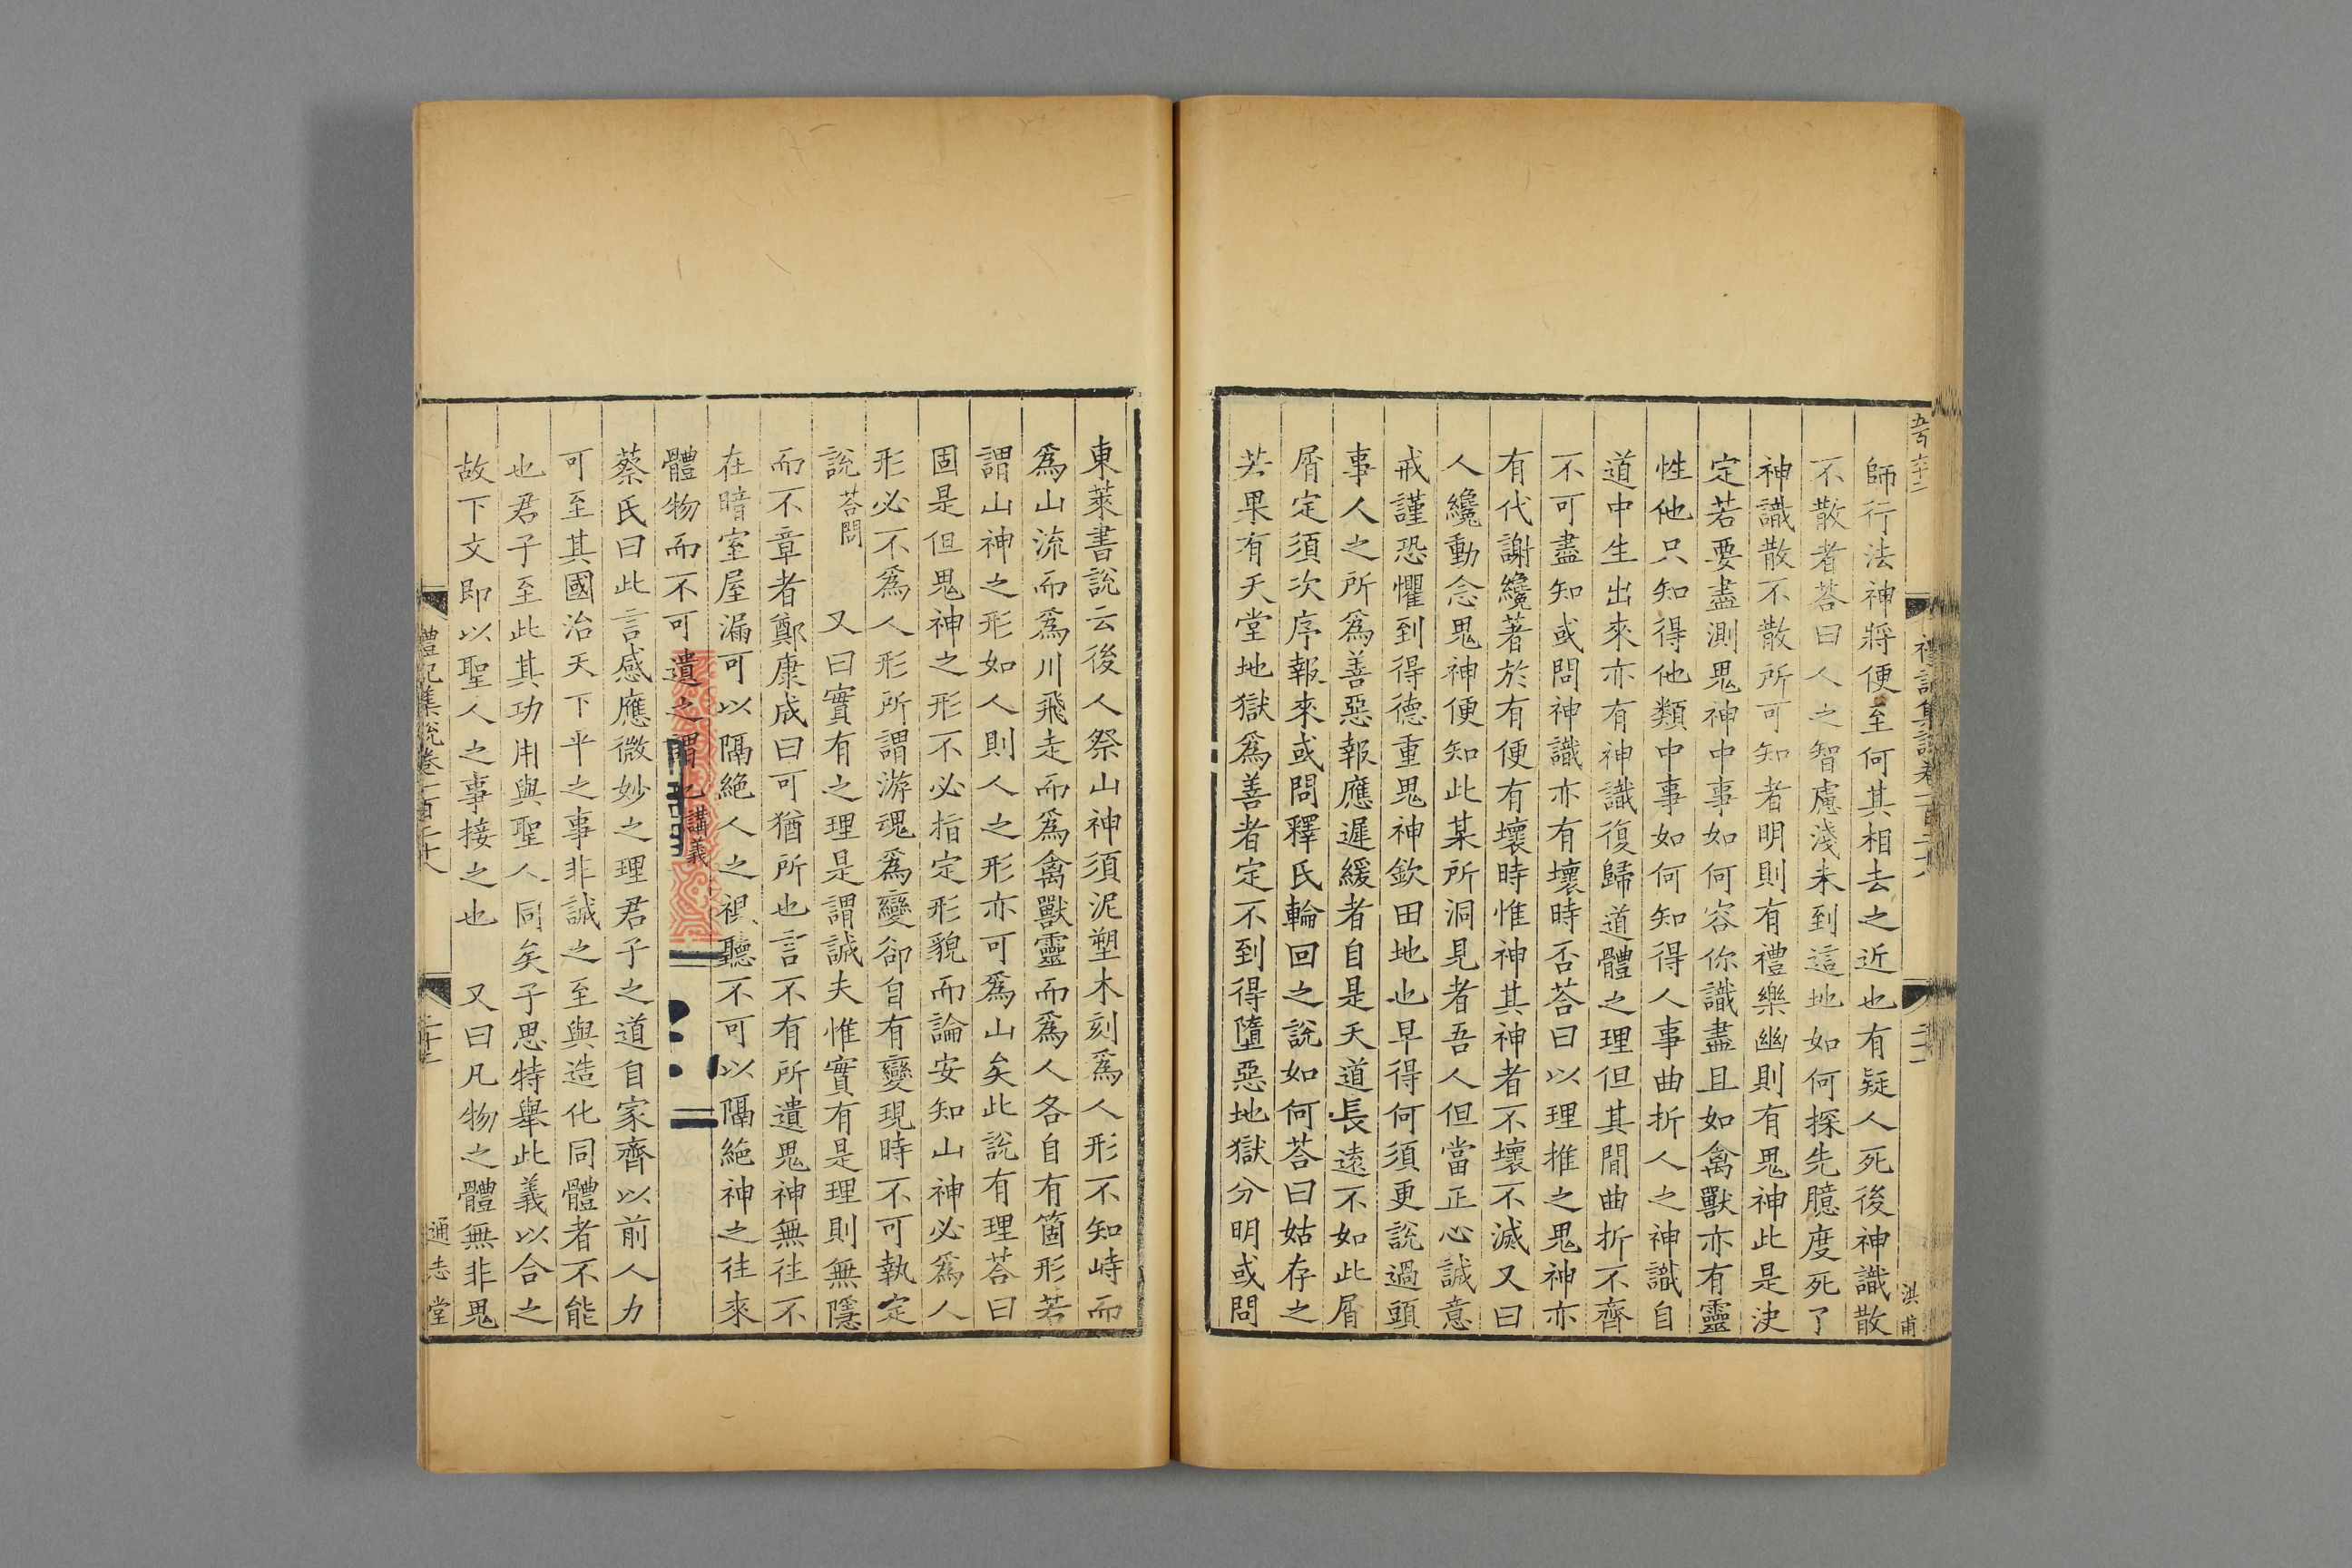 師行法神將便至何其相去之近也有疑人死後神識散
不散者荅曰人之智慮淺未到這地如何探先臆度死了
神識散不散所可知者明則有禮樂幽則有鬼神此是決
定若要盡測鬼神中事如何容你識盡且如禽獸亦有靈
性他只知得他類中事如何知得人事曲折人之神識自
道中生出來亦有神識復歸道體之理但其間曲折不齊
不可盡知或問神識亦有壞時否荅曰以理推之鬼神亦
有代謝纔著於有便有壞時惟神其神者不壞不滅又曰
人纔動念鬼神便知此某所洞見者吾人但當正心誠意
戒謹恐懼到得德重鬼神欽田地也早得何須更說過頭
事人之所爲善惡報應遲緩者自是天道長遠不如此屑
屑定須次序報來或問釋氏輪回之說如何荅曰姑存之
若果有天堂地獄爲善者定不到得墮惡地獄分明或問
洪甫
東萊書說云後人祭山神須泥塑木刻爲人形不知峙而
爲山流而爲川飛走而爲禽獸靈而爲人各自有箇形若
謂山神之形如人則人之形亦可爲山矣此說有理荅曰
固是但鬼神之形不必指定形貌而論安知山神必爲人
形必不爲人形所謂游魂爲變卻自有變現時不可執定
說 荅問 又曰實有之理是謂誠夫惟實有是理則無隱
而不章者鄭康成曰可猶所也言不有所遺鬼神無往不
在暗室屋漏可以隔絶人之視聽不可以隔絶神之往來
體物而不可遺之謂也 講義
蔡氏曰此言感應微妙之理君子之道自家齊以前人力
可至其國治天下平之事非誠之至與造化同體者不能
也君子至此其功用與聖人同矣子思特舉此義以合之
故下文即以聖人之事接之也 又曰凡物之體無非鬼
禮記集說卷一百二十八
通志堂